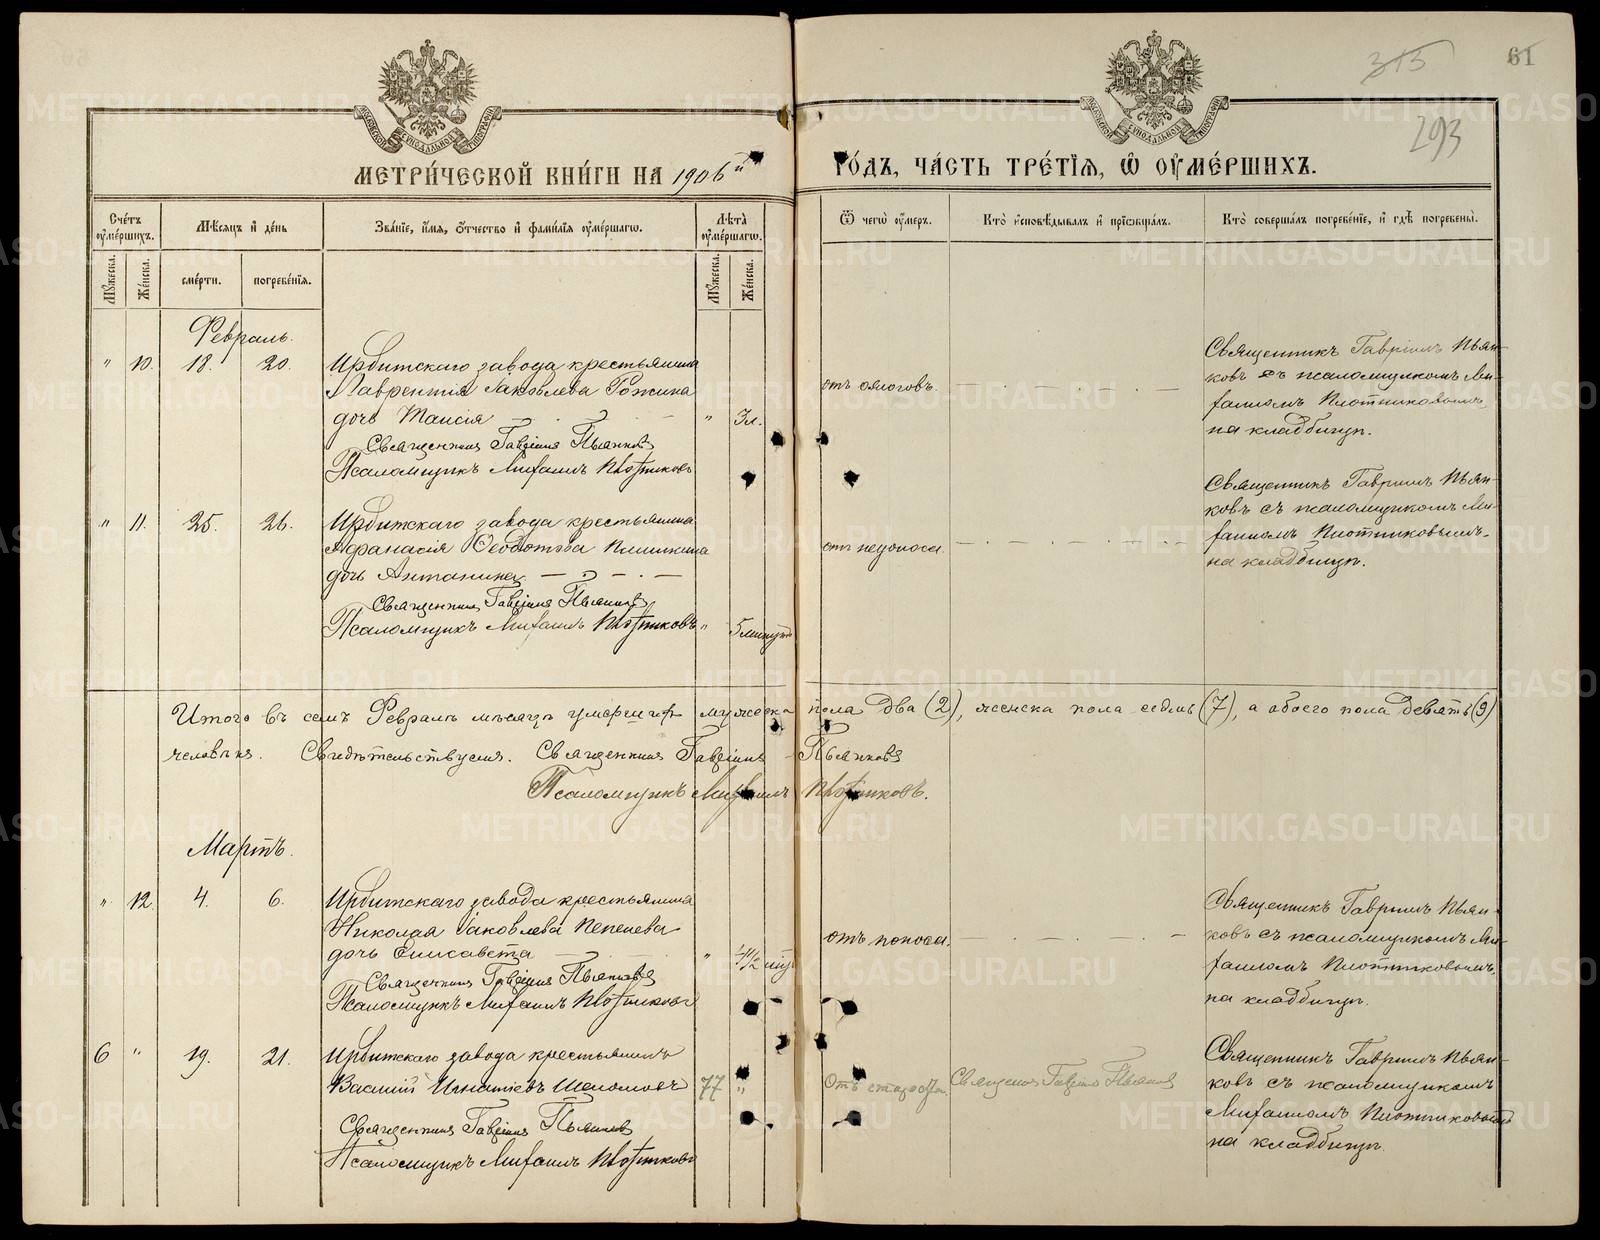 315
61
293
МЕТРИ́ЧЕСКОЙ КНИ́ГИ НА 1906й ГО́ДЪ, ЧА́СТЬ ТРЕ́ТІѦ, Ѡ ОУ҆МЕ́РШИХЪ.
Сче́тъ оу҆ме́ршихъ.
Мѣ́сѧцъ и҆ де́нь
Зва́нїе, и҆́мѧ, ѻ҆́тчество и҆ фами́лїѧ оу҆ме́ршагѡ.
Лѣ́та оу҆ме́ршагѡ.
Ѿ чегѡ̀ оу҆́меръ.
Кто̀ и҆сповѣ́дывалъ и҆ прїѡбща́лъ.
Кто̀ соверша́лъ погребе́нїе, и҆ гдѣ̀ погребены̀.
Мꙋ́жеска.
Же́нска.
сме́рти.
погребе́нїѧ.
Мꙋ́жеска.
Же́нска.
Февраль.
" 10. 18. 20. Ирбитскаго завода крестьянина
Лаврентія Іаковлева
дочь Таисія " 3л.
Священникъ Гавріилъ Пьянковъ
Псаломщикъ Михаилъ Плотниковъ
отъ ожоговъ.
Священникъ Гавріилъ Пьян-
ковъ съ псаломщикомъ Ми-
хаиломъ Плотниковымъ
на кладбищѣ.
" 11. 25. 26. Ирбитскаго завода крестьянина
Афанасія
дочь Антонина
Священникъ Гавріилъ Пьянковъ
Псаломщикъ Михаилъ Плотниковъ " 5 минутъ
отъ недоноса.
Священникъ Гавріилъ Пьян-
ковъ съ псаломщикомъ Ми-
хаиломъ Плотниковымъ
на кладбищѣ.
Итого въ семъ Февралѣ мѣсяцѣ умершихъ мужеска пола два (2), женска пола седмь (7), а обоего пола девять (9)
человѣкъ. Свидѣтельствуемъ. Священникъ Гавріилъ Пьянковъ
Псаломщикъ Михаилъ Плотниковъ.
Мартъ.
" 12. 4. 6. Ирбитскаго завода крестьянина
Николая Іаковлева Пепелева
дочь Елисавета
Священникъ Гавріилъ Пьянковъ
Псаломщикъ Михаилъ Плотниковъ
отъ поноса.
Священникъ Гавріилъ Пьян-
ковъ съ псаломщикомъ Ми-
хаиломъ Плотниковымъ.
на кладбищѣ.
6 " 19. 21. Ирбитскаго завода крестьянинъ
Василій Игнатіевъ Шеломовъ 77 "
Священникъ Гавріилъ Пьянковъ
Псаломщикъ Михаилъ Плотниковъ
Отъ старости.
Священникъ Гавріилъ Пьянковъ
Священникъ Гавріилъ Пьян-
ковъ съ псаломщикомъ
Михаиломъ Плотниковымъ
на кладбищѣ.
METRIKI.GASO-URAL.RU